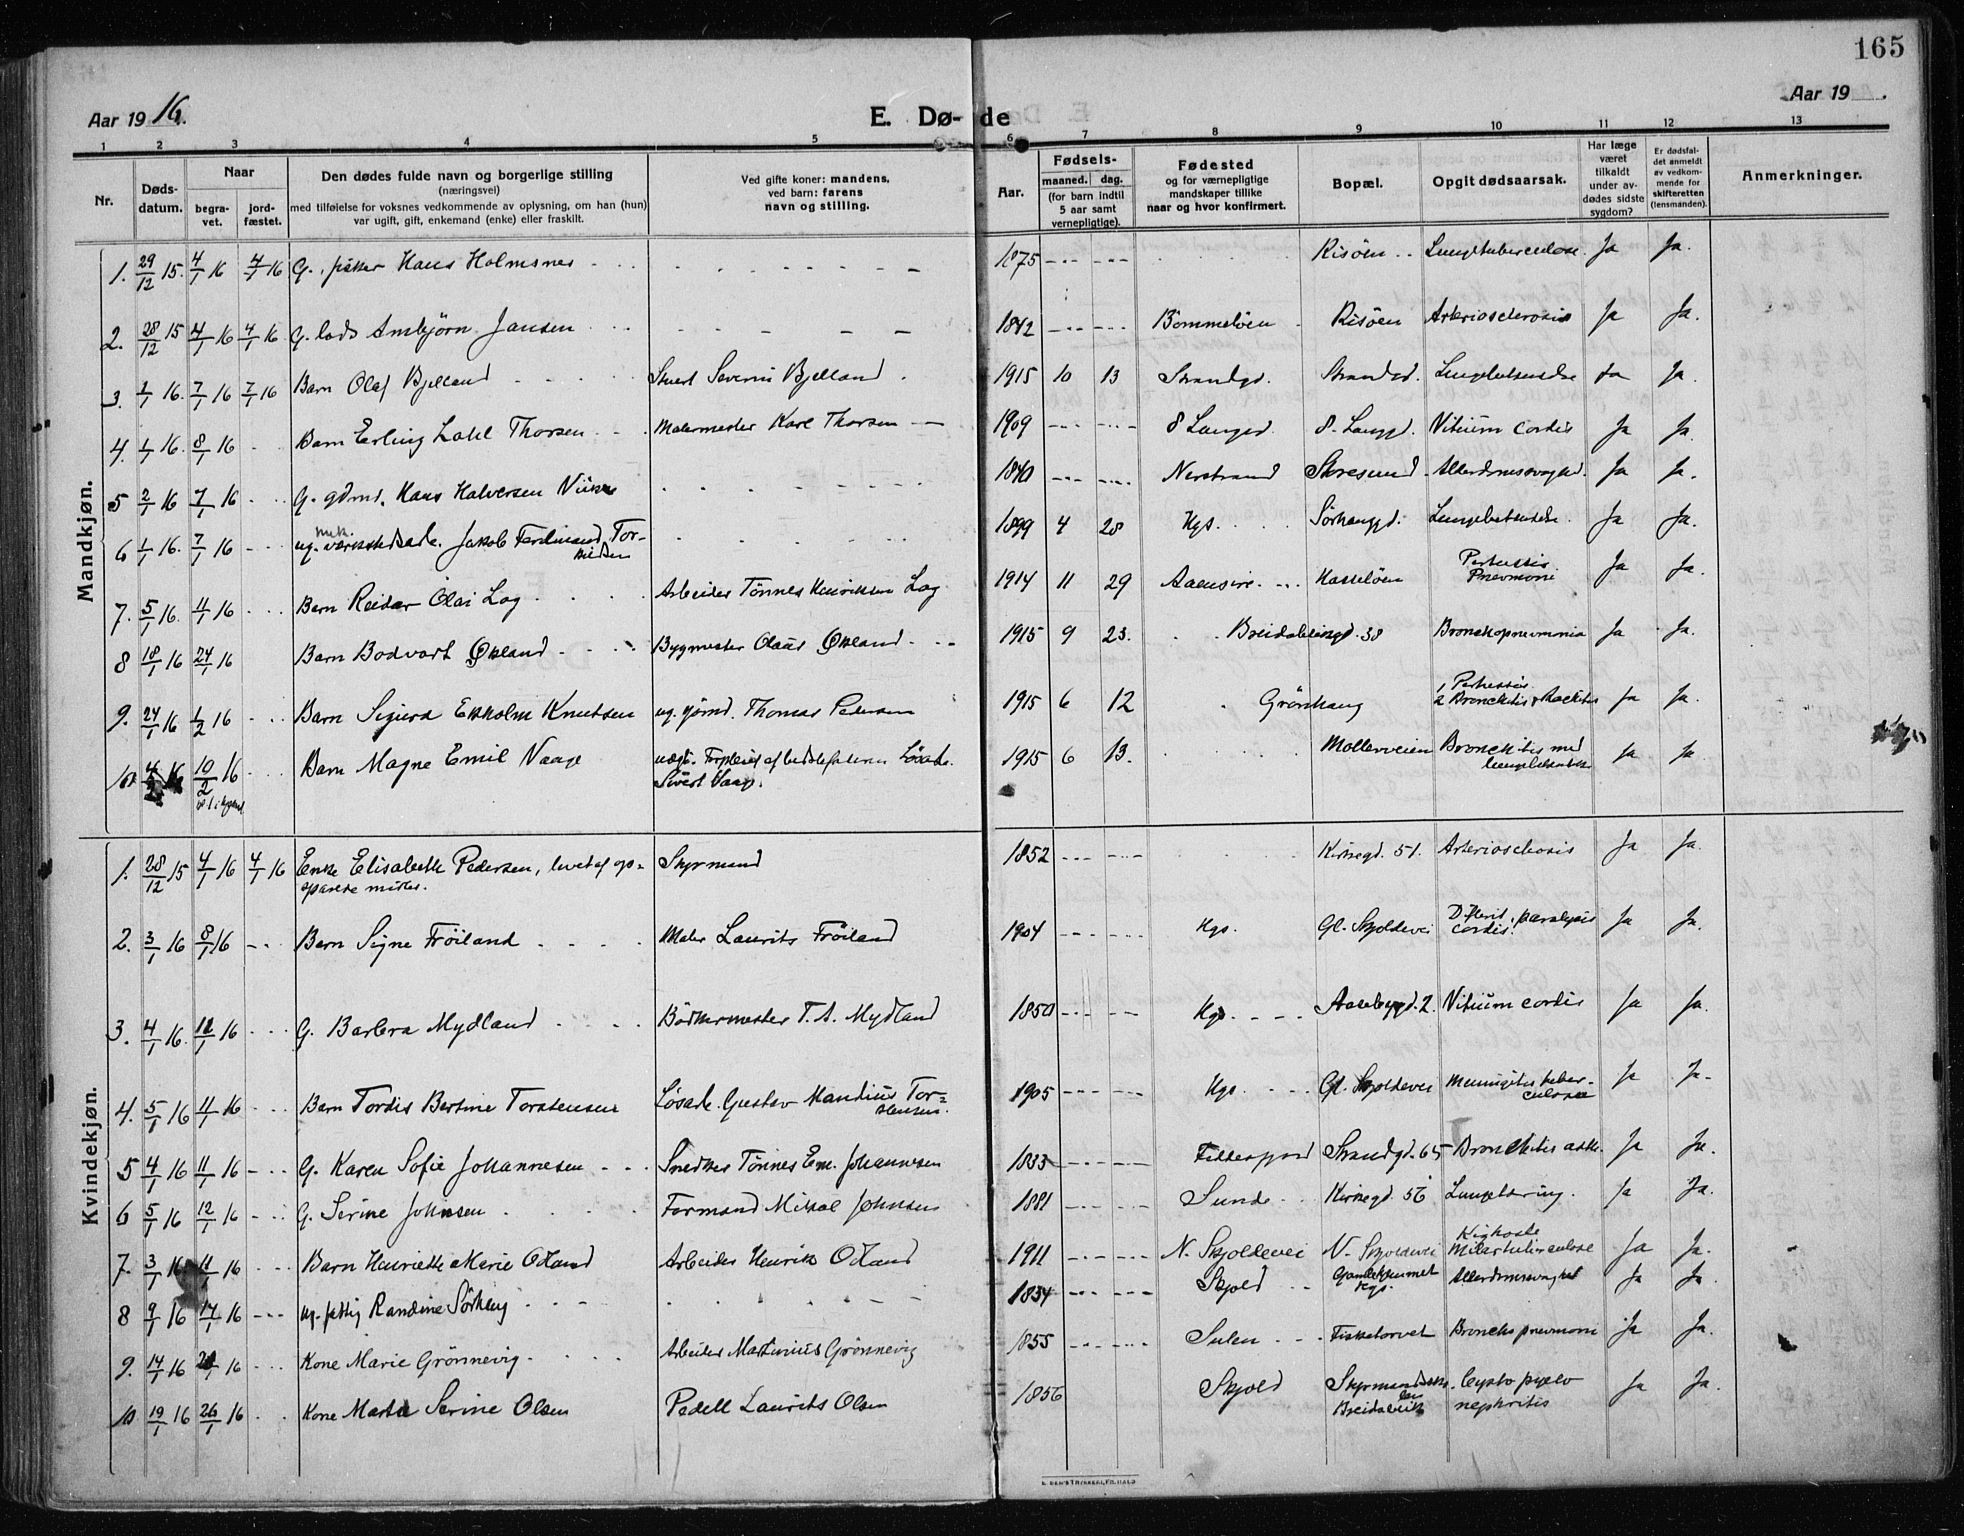 165
Aar 19 16.
E. Dø- de
Aar 19 .
1 2 3 4 5 6 7 8 9 10 11 12 13
Nr.
Døds-
datum.
Naar
begra-
vet.
jord-
fæstet.
Den dødes fulde navn og borgerlige stilling
(næringsvei)
med tilføielse for voksnes vedkommende av oplysning, om han (hun)
var ugift, gift, enkemand (enke) eller fraskilt.
Ved gifte koner: mandens,
ved barn: farens
navn og stilling.
Aar.
Fødsels-
maaned. dag.
(for barn indtil
5 aar samt
vernepligtige).
Fødested
og for værnepligtige
mandskaper tillike
naar og hvor konfirmert.
Bopæl.
Opgit dødsaarsak.
Har læge
været
tilkaldt
under av-
dødes sidste
sygdom?
Er dødsfal-
det anmeldt
av vedkom-
mende for
skifteretten
(lensmanden).
Anmerkninger.
Mandkjøn.
1. 29/12 15. 4/1 16 4/1 16 G. fisker Hans Holmsnes 1875 Risöen Lungetuberculose Ja Ja.
2. 28/12 15 4/1 16 4/1 16 G. lods Ambjörn Jansen 1842 Bömmelöen Risöen Arteriosclerosis Ja Ja.
3. 1/1 16. 7/1 16 7/1 16 Barn Olaf Bjelland Stuert Severin Bjelland 1915 10 13 Strandgd. Strandgd. Lungebetændelse Ja Ja.
4. 1/1 16. 8/1 16 Barn Erling Dahl Thorsen Malermester Karl Thorsen 1909 8 Langgd. 8. Langgd. Vitium cordis Ja Ja.
5 2/1 16 7/1 16 G. gdmd. Hans Halversen 1840 Nerstrand Skresund Alderdomssvaghed. Ja Ja.
6 1/1 16. 7/1 16 ug. mek. værkstedsarb. Jakob Ferdinand Tor-
kildsen 1899 4 28 Hgs. Sörhauggd. Lungebetendelse. Ja Ja.
7. 5/1 16. 11/1 16 Barn Reidar Olai Log Arbeider Tönnes Henriksen Log 1914 11 29 Aaensire Hasselöen Pertussis
Pnevmoni Ja Ja.
8 18/1 16 24/1 16 Barn Bodvart Økland Bygmester Olaus Økland 1915 9 23. Breidablikgd. 38 Bronchopnevmonia Ja Ja.
9. 24/1 16 1/2 16 Barn Sigurd Ekholm Knutsen ug. sjömd. Thomas Pedersen 1915 6 12 Grönhaug 1 Pertussis
2 Bronchitis Rachitis Ja Ja.
10 4/2 16 10/2 16 Barn Magne Emil Vaage Sivert Vaage. 1915 6 13. Mölleveien Bronchitis med
lungebetendelse Ja Ja.
Kvindekjøn.
1. 28/12 15 4/1 16 4/1 16 Enke Elisabeth Pedersen, levet af op-
sparede midler. Styrmand 1852 Kirkegd. 51. Arteriosclerosis Ja Ja
2. 3/1 16 8/1 16 Barn Signe Fröiland Maler Laurits Fröiland 1904 Hgs. Gl. Skjoldevei Difterit, paralysis
cordis. Ja Ja.
3. 4/1 16. 12/1 16 G. Barbra Mydland Bödkermester T. A. Mydland 1850 Hgs. Aasebygd. 2. Vitium cordis Ja Ja.
4. 5/1 16 11/1 16 Barn Tordis Bertine Torstensen Lösarb. Gustav Mandius Tor-
stensen. 1905 Hgs. Gl. Skjoldevei Meningitis tuber-
culosa Ja Ja.
5 4/1 16 11/1 16 G. Karen Sofie Johannesen Snedker Tönnes Em. Johannesen 1833 Feddefjord Strandgd. 65 Bronchitis asth. Ja Ja.
6 5/1 16 12/1 16 G. Serine Johnsen Formand Mikal Johnsen 1881 Sunde Kirkegd. 56 Lungetæring. Ja Ja.
7. 3/1 16. 11/1 16 Barn Henriette Marie Odland Arbeider Henrik Odland 1911 N. Skjoldevei N. Skjoldevei Kighoste
Miliartuberculose Ja Ja.
8 9/1 16 17/1 16 ug. fattig Randine Sörhaug 1834 Skjold Gamlehjemmet
Hgs. Alderdomssvaghet Ja Ja
9. 14/1 16 21/1 16 Kone Marie Grönnevig Arbeider Martinius Grönnevig 1855 Sulen Fisketorvet Bronchopnevmoni Ja Ja.
10 19/1 16 26/1 16 Kone Marta Serine Olsen Pedell Laurits Olsen 1856 Skjold Styrmandssko-
len
Breidablik Cysto pyelo
nephritis Ja Ja.